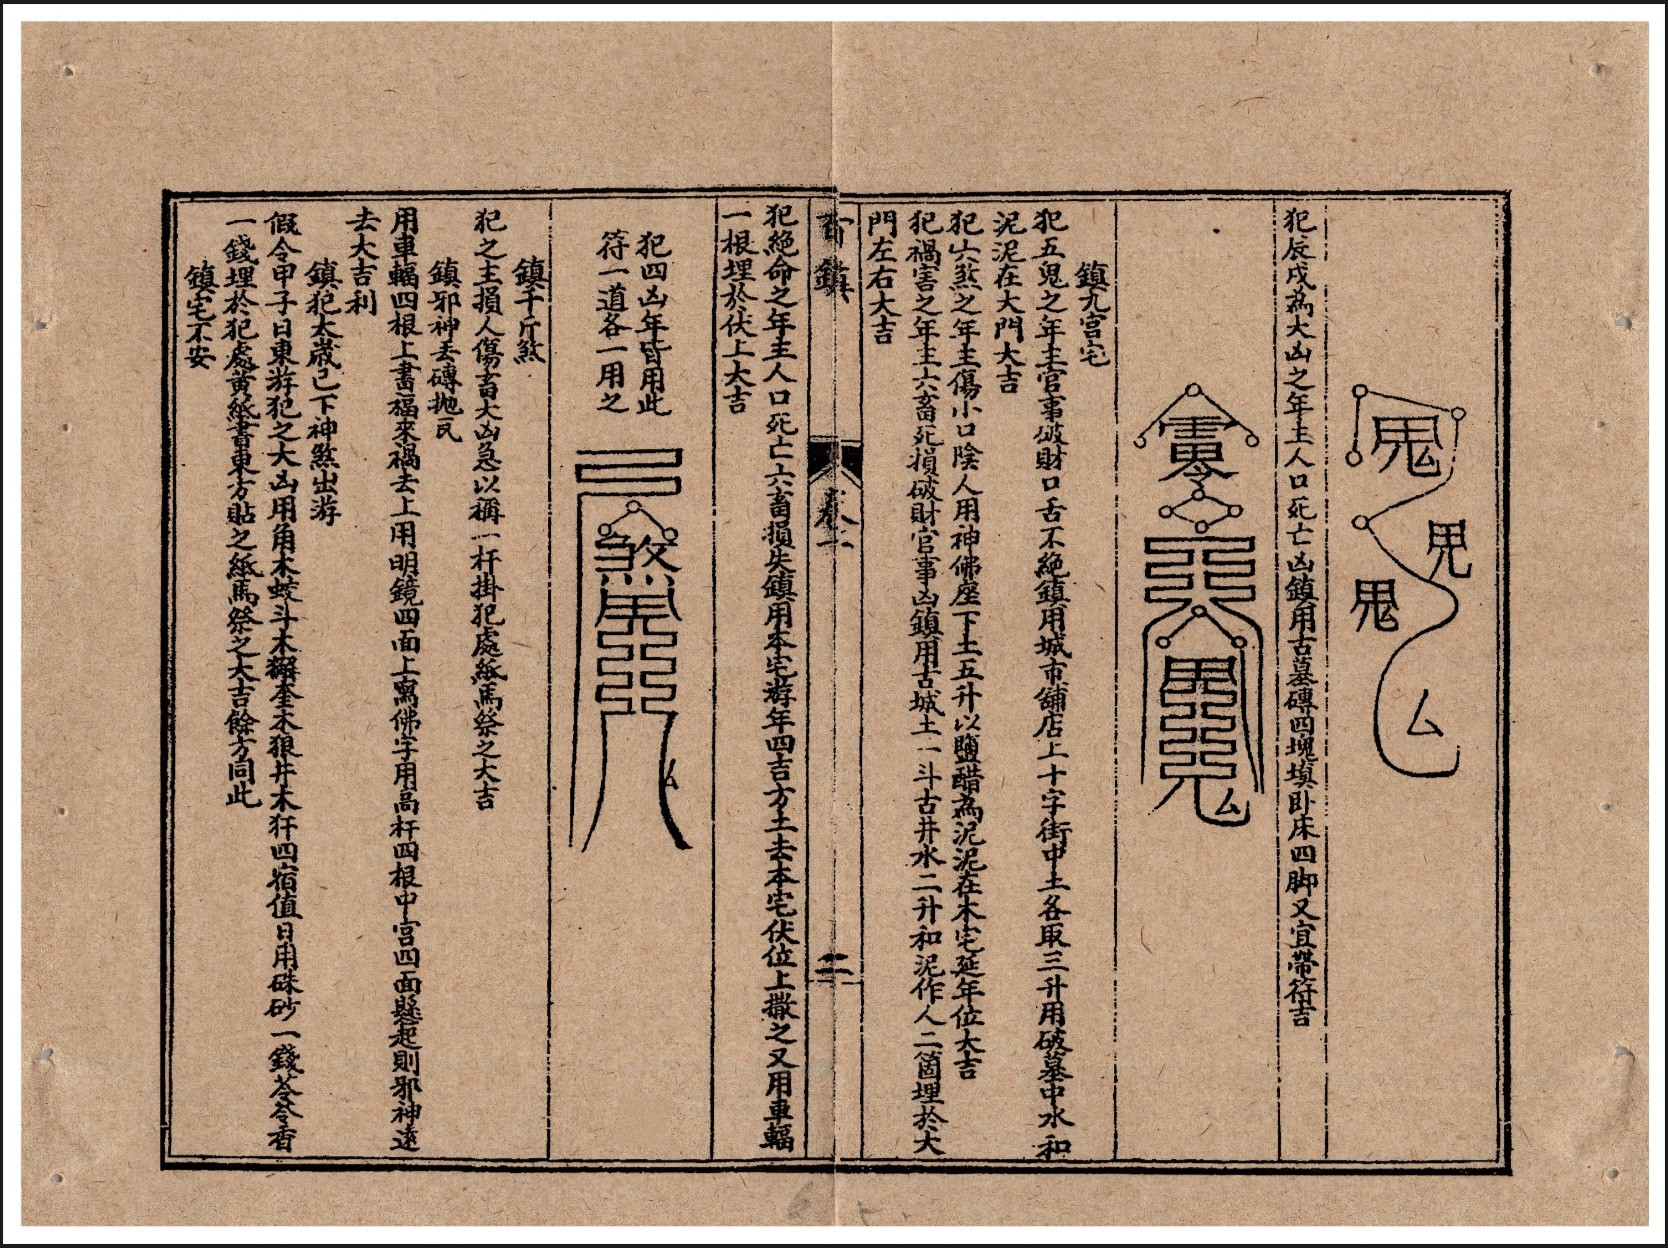 犯辰戌為大凶之年主人口死亡凶鎮用古墓磚四塊填卧床四脚又宜帶符吉
鎮九宮宅
犯五鬼之年主官事破財口舌不絕鎮用城市舖店上十字街中土各取三升用破墓中水和
泥泥在大門大吉
犯六煞之年主傷小口陰人用神佛座下土五升以鹽醋為泥泥在本宅延年位大吉
犯禍害之年主六畜死損破財官事凶鎮用古城土一斗古井水二升和泥作人二箇埋於大
門左右大吉
百鎮
卷一
二
犯絕命之年主人口死亡六畜損失鎮用本宅游年四吉方土去本宅伏位上撒之又用車輻
一根埋於伏上大吉
犯四凶年皆用此
符一道各一用之
鎮千斤煞
犯之主損人傷畜大凶急以稱一杆掛犯處紙馬祭之大吉
鎮邪神丟磚拋瓦
用車輻四根上書福來禍去上用明鏡四面上寫佛字用高杆四根中宮四面懸起則邪神遠
去大吉利
鎮犯太歲已下神煞出游
假令甲子日東游犯之大凶用角木蛟斗木獬奎木狼井木犴四宿值日用硃砂一錢苓苓香
一錢埋於犯處黄紙書東方貼之紙馬祭之大吉餘方同此
鎮宅不安